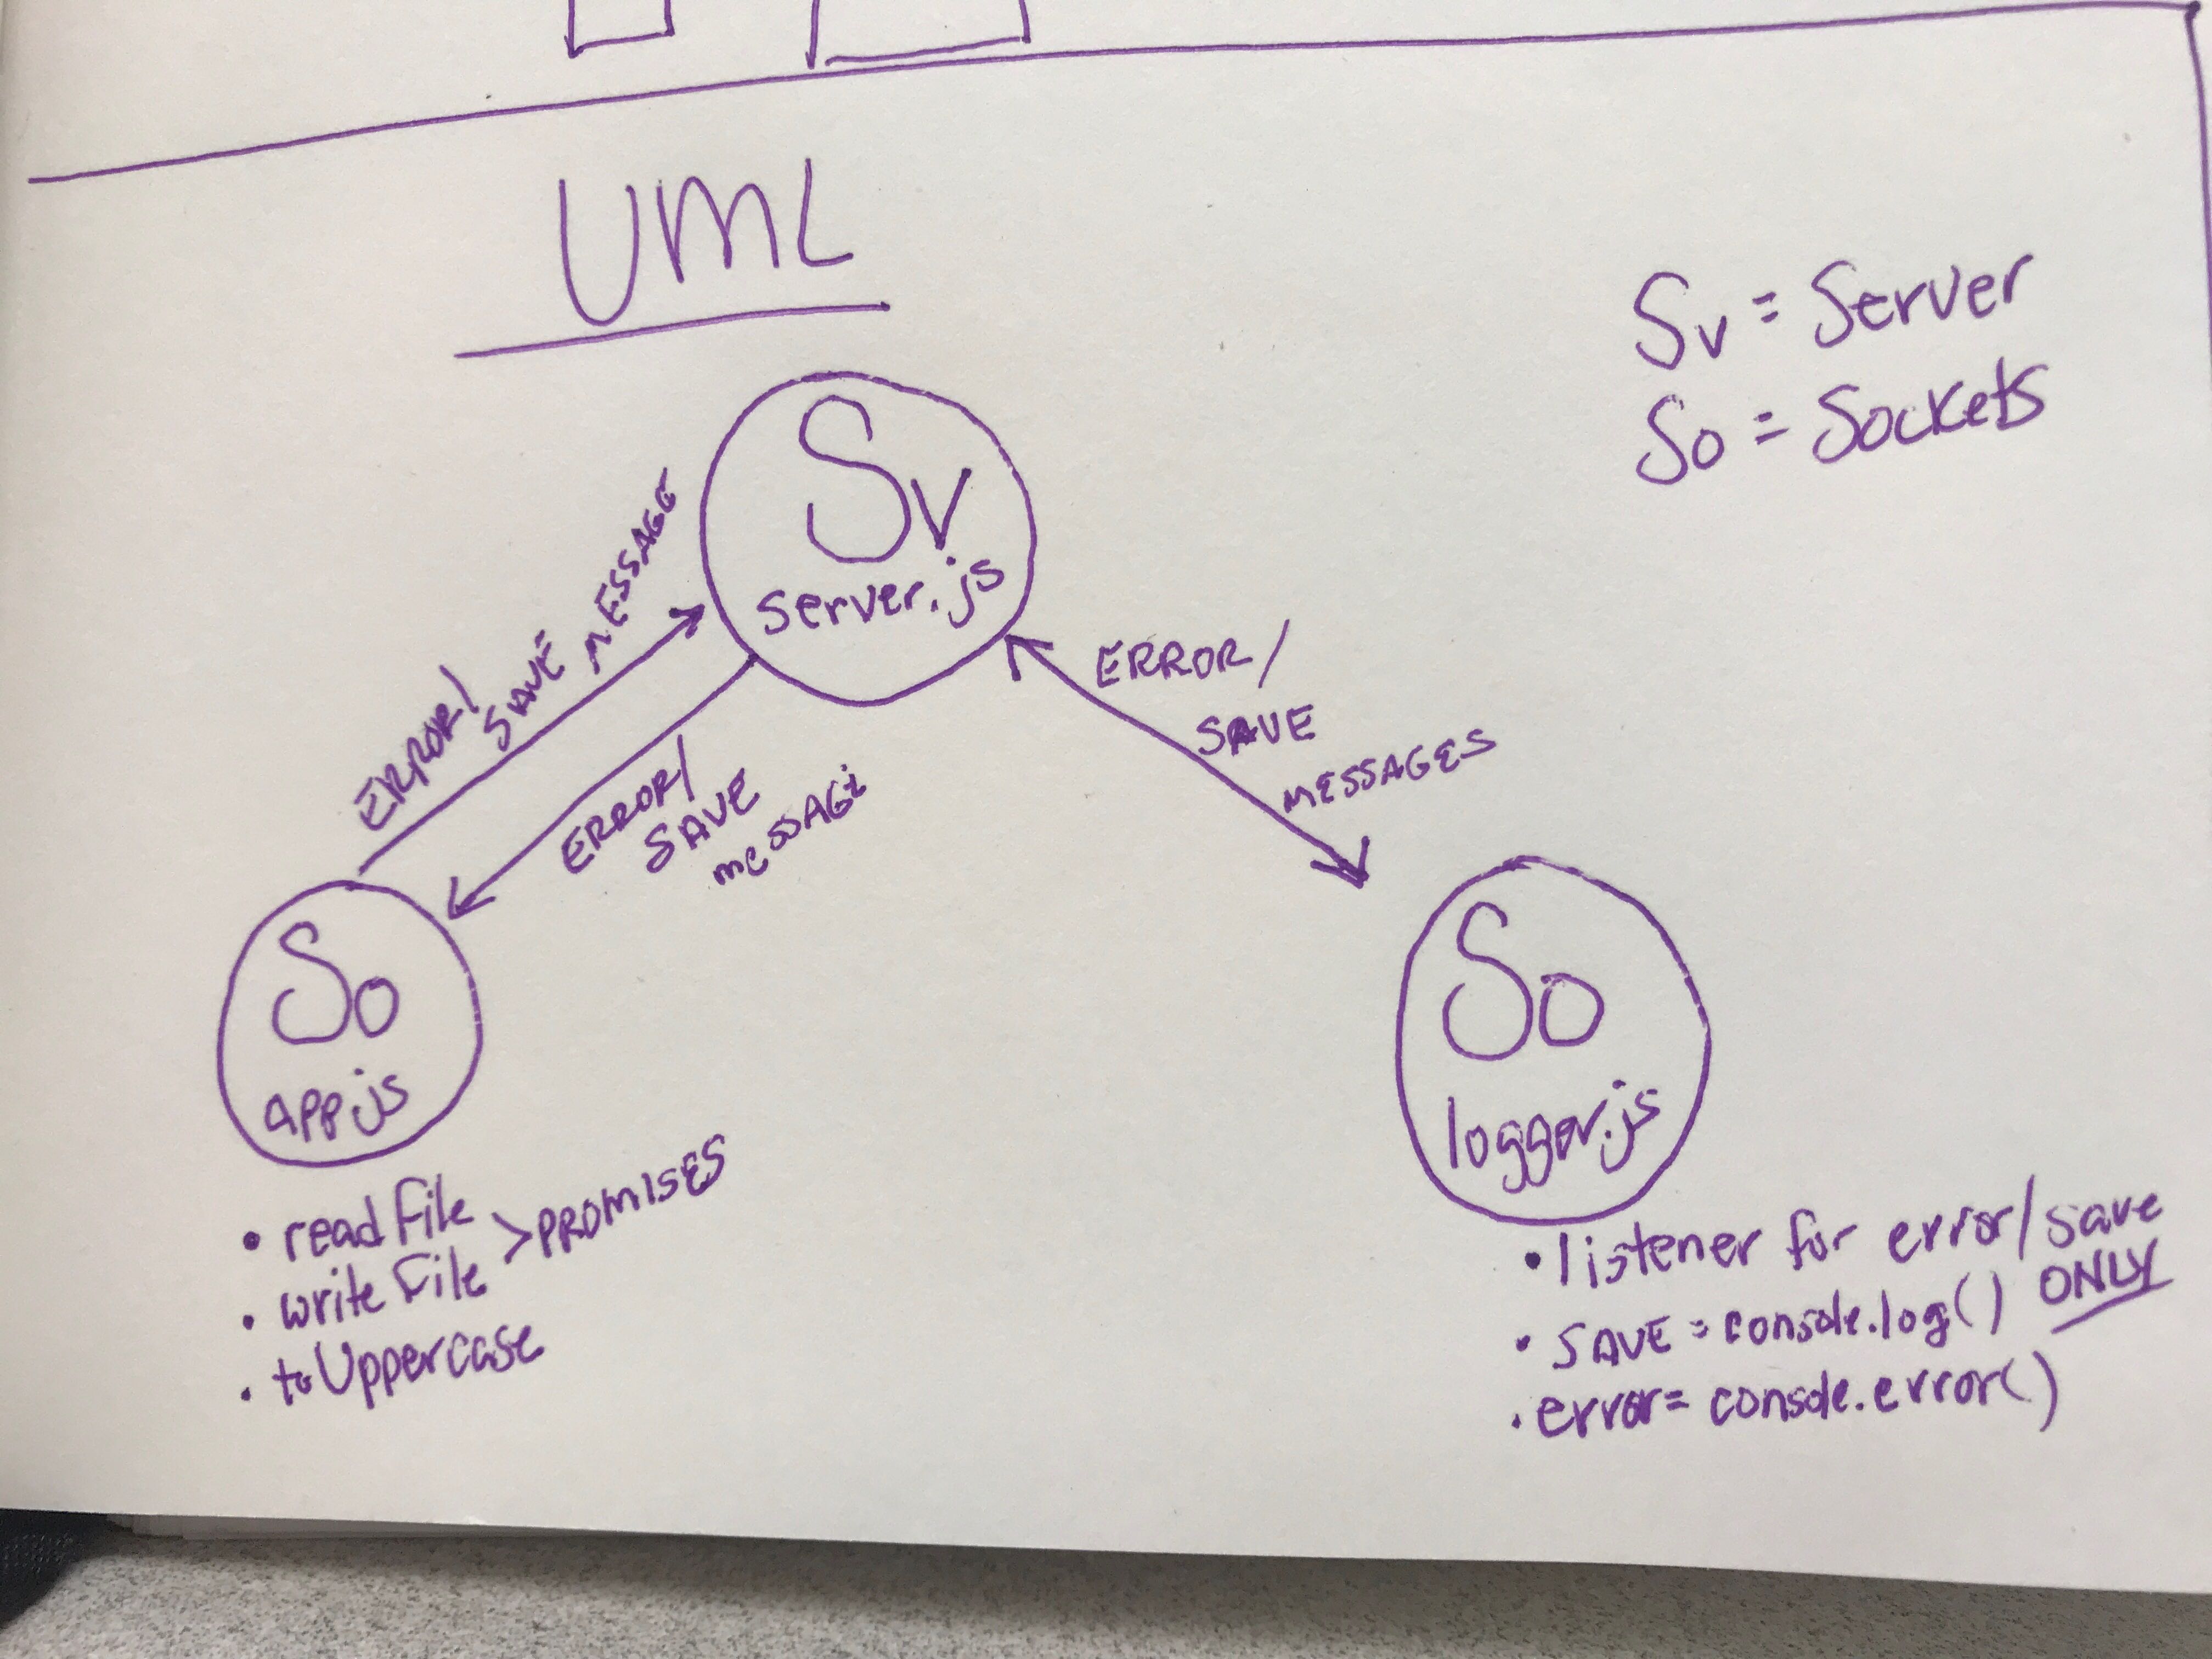 UML
Sv = Server
So = Sockets
Sv
server.js
ERROR/
SAVE MESSAGE
ERROR/
SAVE
message
ERROR/
SAVE
MESSAGES
So
app.js
• readFile
• writeFile > PROMISES
• toUppercase
So
logger.js
• listener for error/save
ONLY
• SAVE = console.log()
• error = console.error()